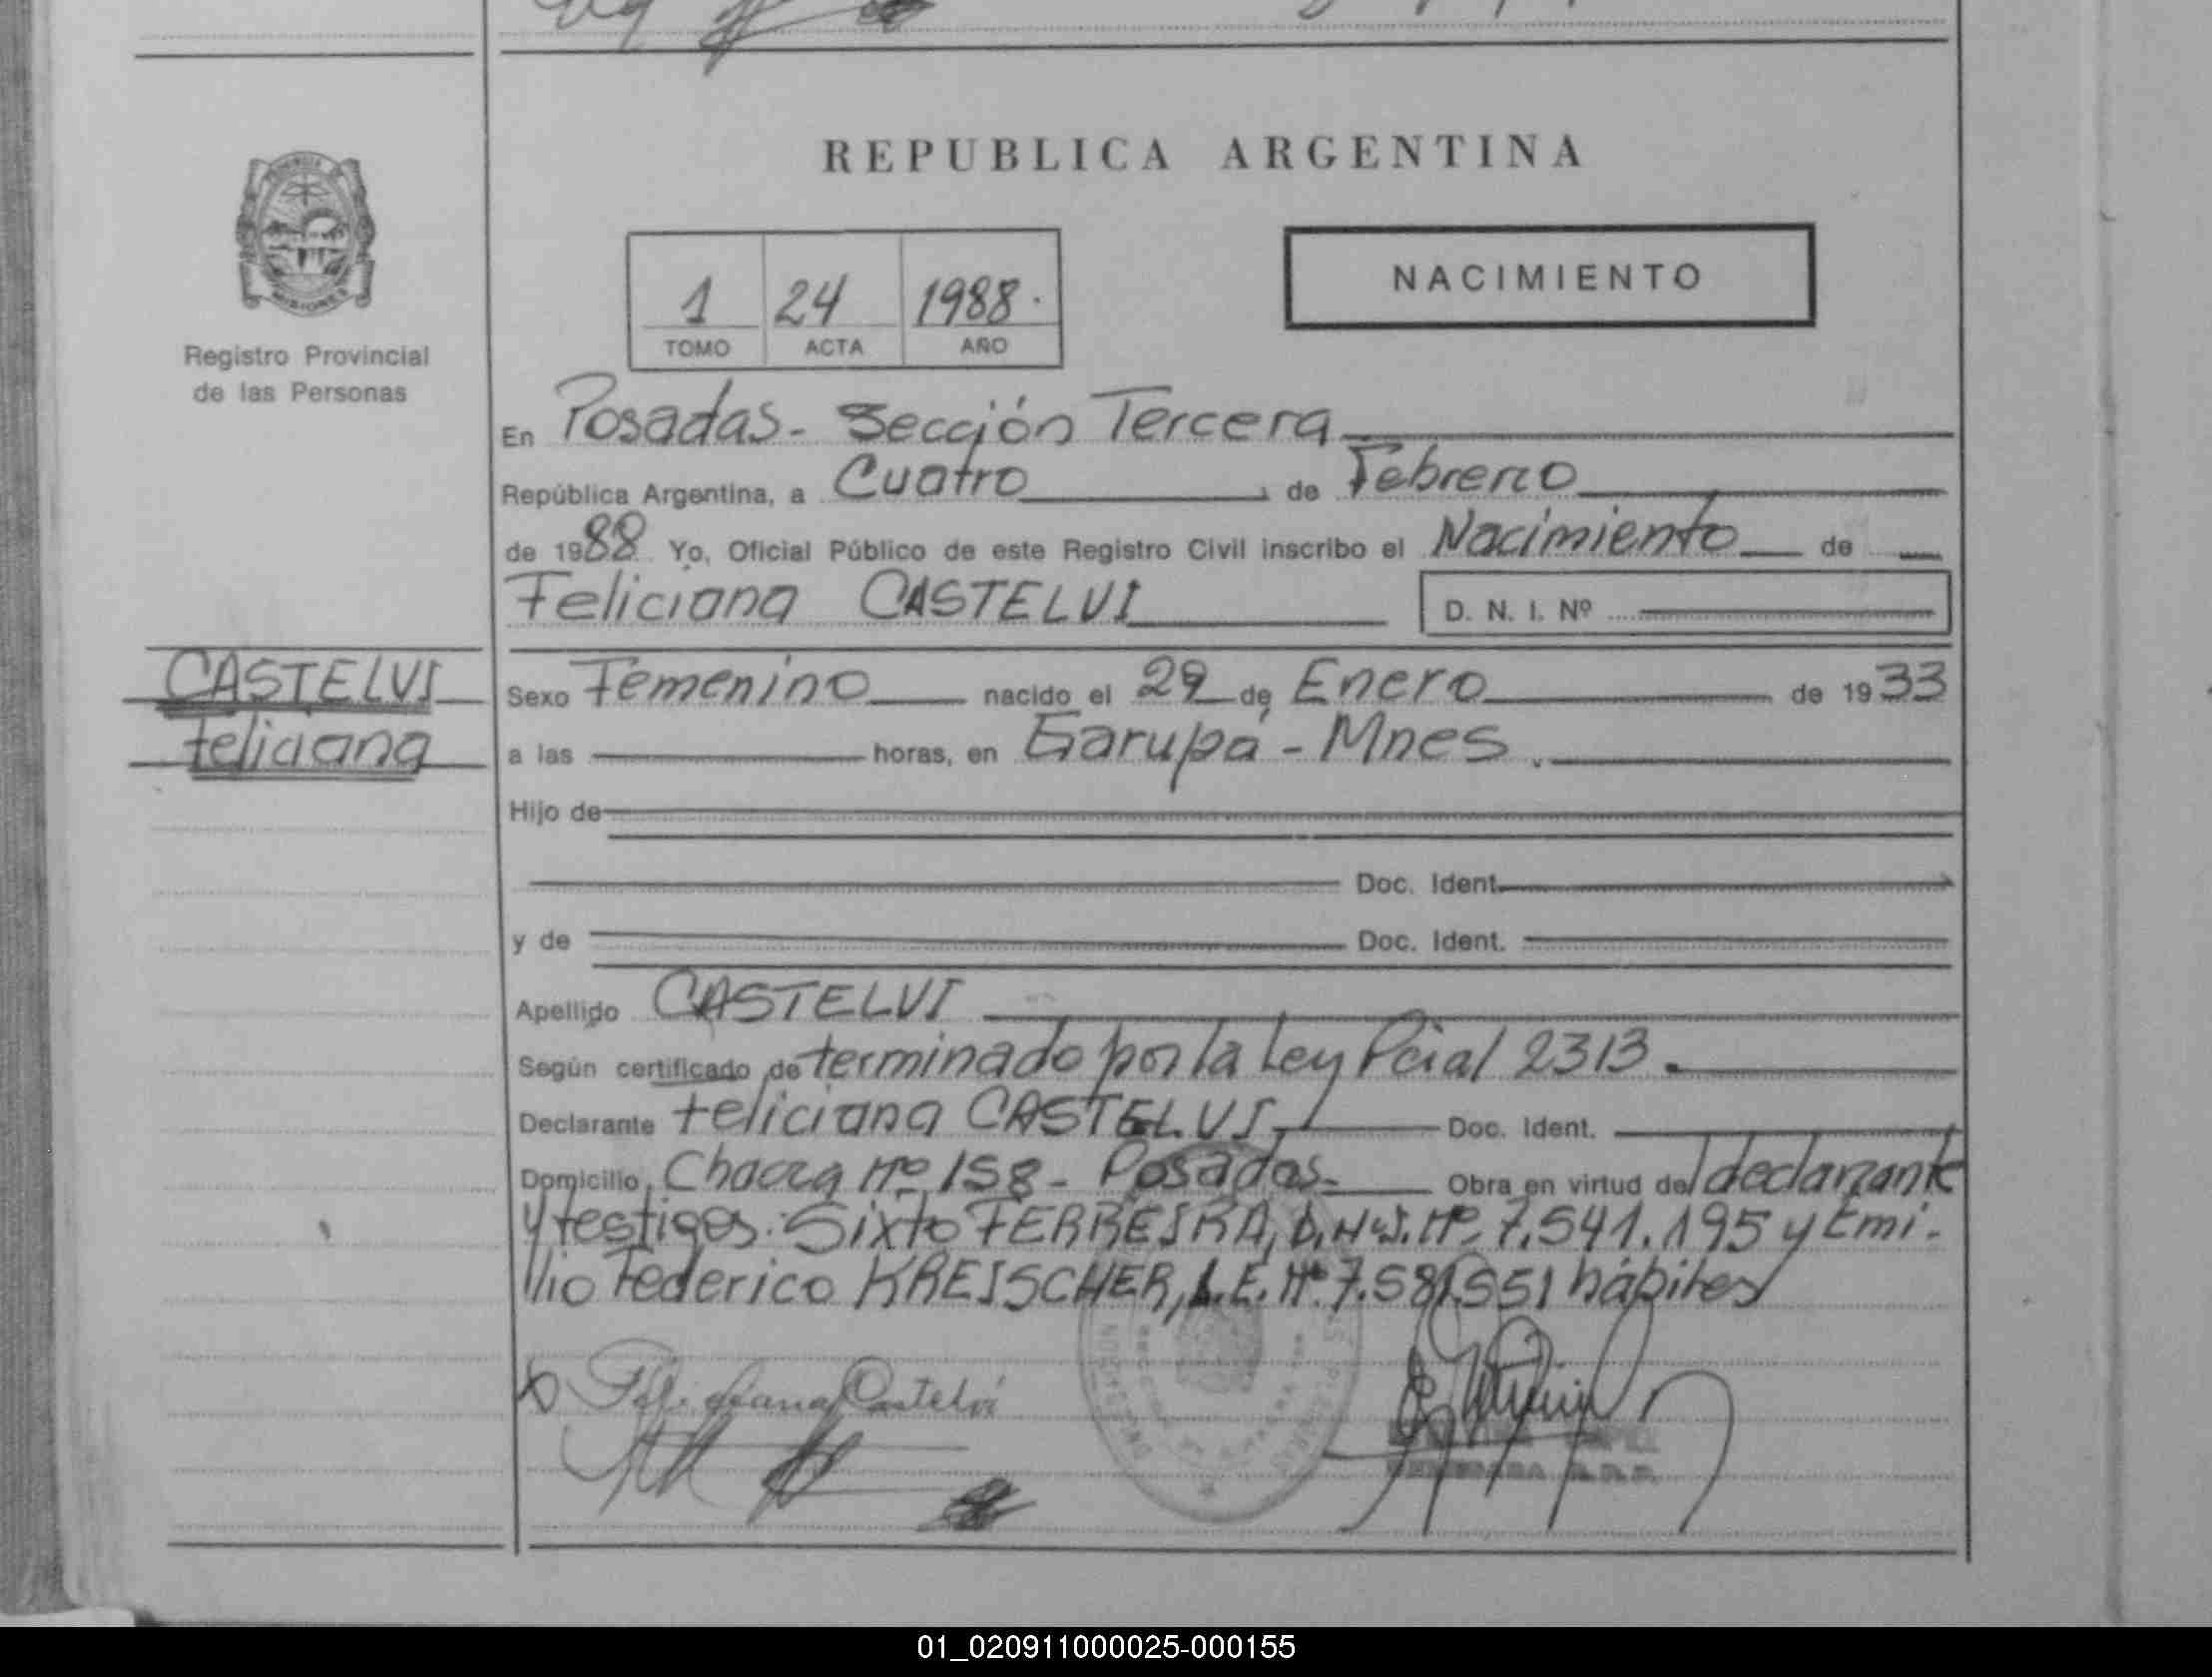 REPUBLICA ARGENTINA
MISIONES
Registro Provincial
de las Personas
1 24 1988.
TOMO ACTA AÑO
NACIMIENTO
En Posadas - Sección Tercera
República Argentina, a Cuatro de Febrero
de 1988 Yo, Oficial Público de este Registro Civil inscribo el Nacimiento de
Feliciana CASTELVI D. N. I. Nº
CASTELVI
Feliciana
Sexo Femenino nacido el 29 de Enero de 1933
a las horas, en Garupá - Mnes.
Hijo de
Doc. Ident.
y de Doc. Ident.
Apellido CASTELVI
Según certificado determinado por la Ley Pcial 2313.
Declarante Feliciana CASTELVI Doc. Ident.
Domicilio Chacra nº 158 - Posadas - Obra en virtud del declarante
y testigos: Sixto FERREIRA, D.N.I. Nº 7.541.195 y Emi-
lio Federico KREISCHER, L.E. Nº 7.581.551 hábiles
Feliciana Castelví
01_020911000025-000155